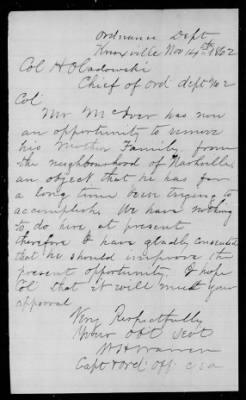 Ordnance Dept
Knoxville Nov 14th 1862
Col H Oladowski
Chief of Ord dept No 2
Col
Mr McIver has now
an opportunity to remove
his Mother Family from
the neighbourhood of Nashville
an object that he has for
a long time been trying to
accomplish. We have nothing
to do here at present
therefore I have gladly consented
that he should improve the
present opportunity. I hope
Col that it will meet your
approval
Very Respectfully
Your Obt Servt
W H Warren
Capt & Ord Off C S A